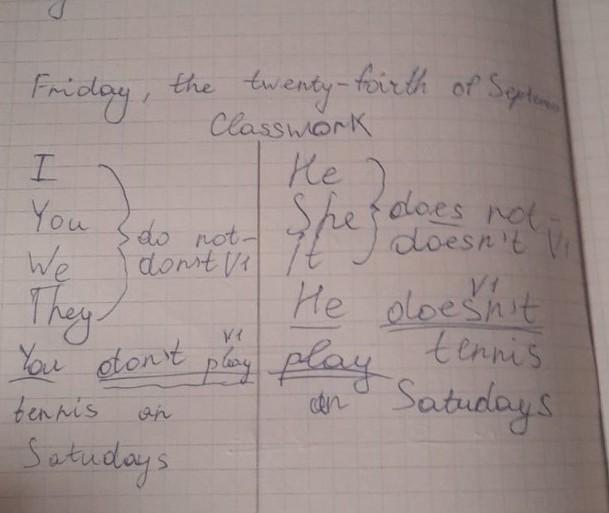 Friday, the twenty-foirth of Septem
Classwork
I
You
We
They
do not-
don't V1
You don't play
V1
tennis on
Satudays
He
She
It
does not-
doesn't V1
He doesn't
V1
play tennis
on Satudays